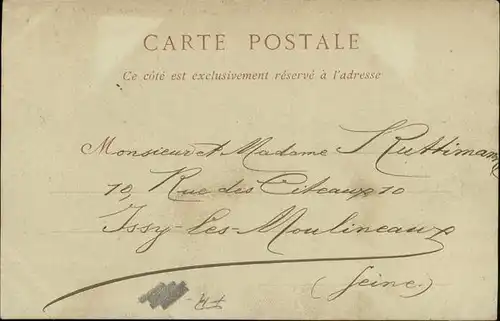 CARTE POSTALE
Ce côté est exclusivement réservé à l'adresse
Monsieur et Madame Ruttimann
10, Rue des Citeaux 10
Issy-Les-Moulineaux
(Seine.)